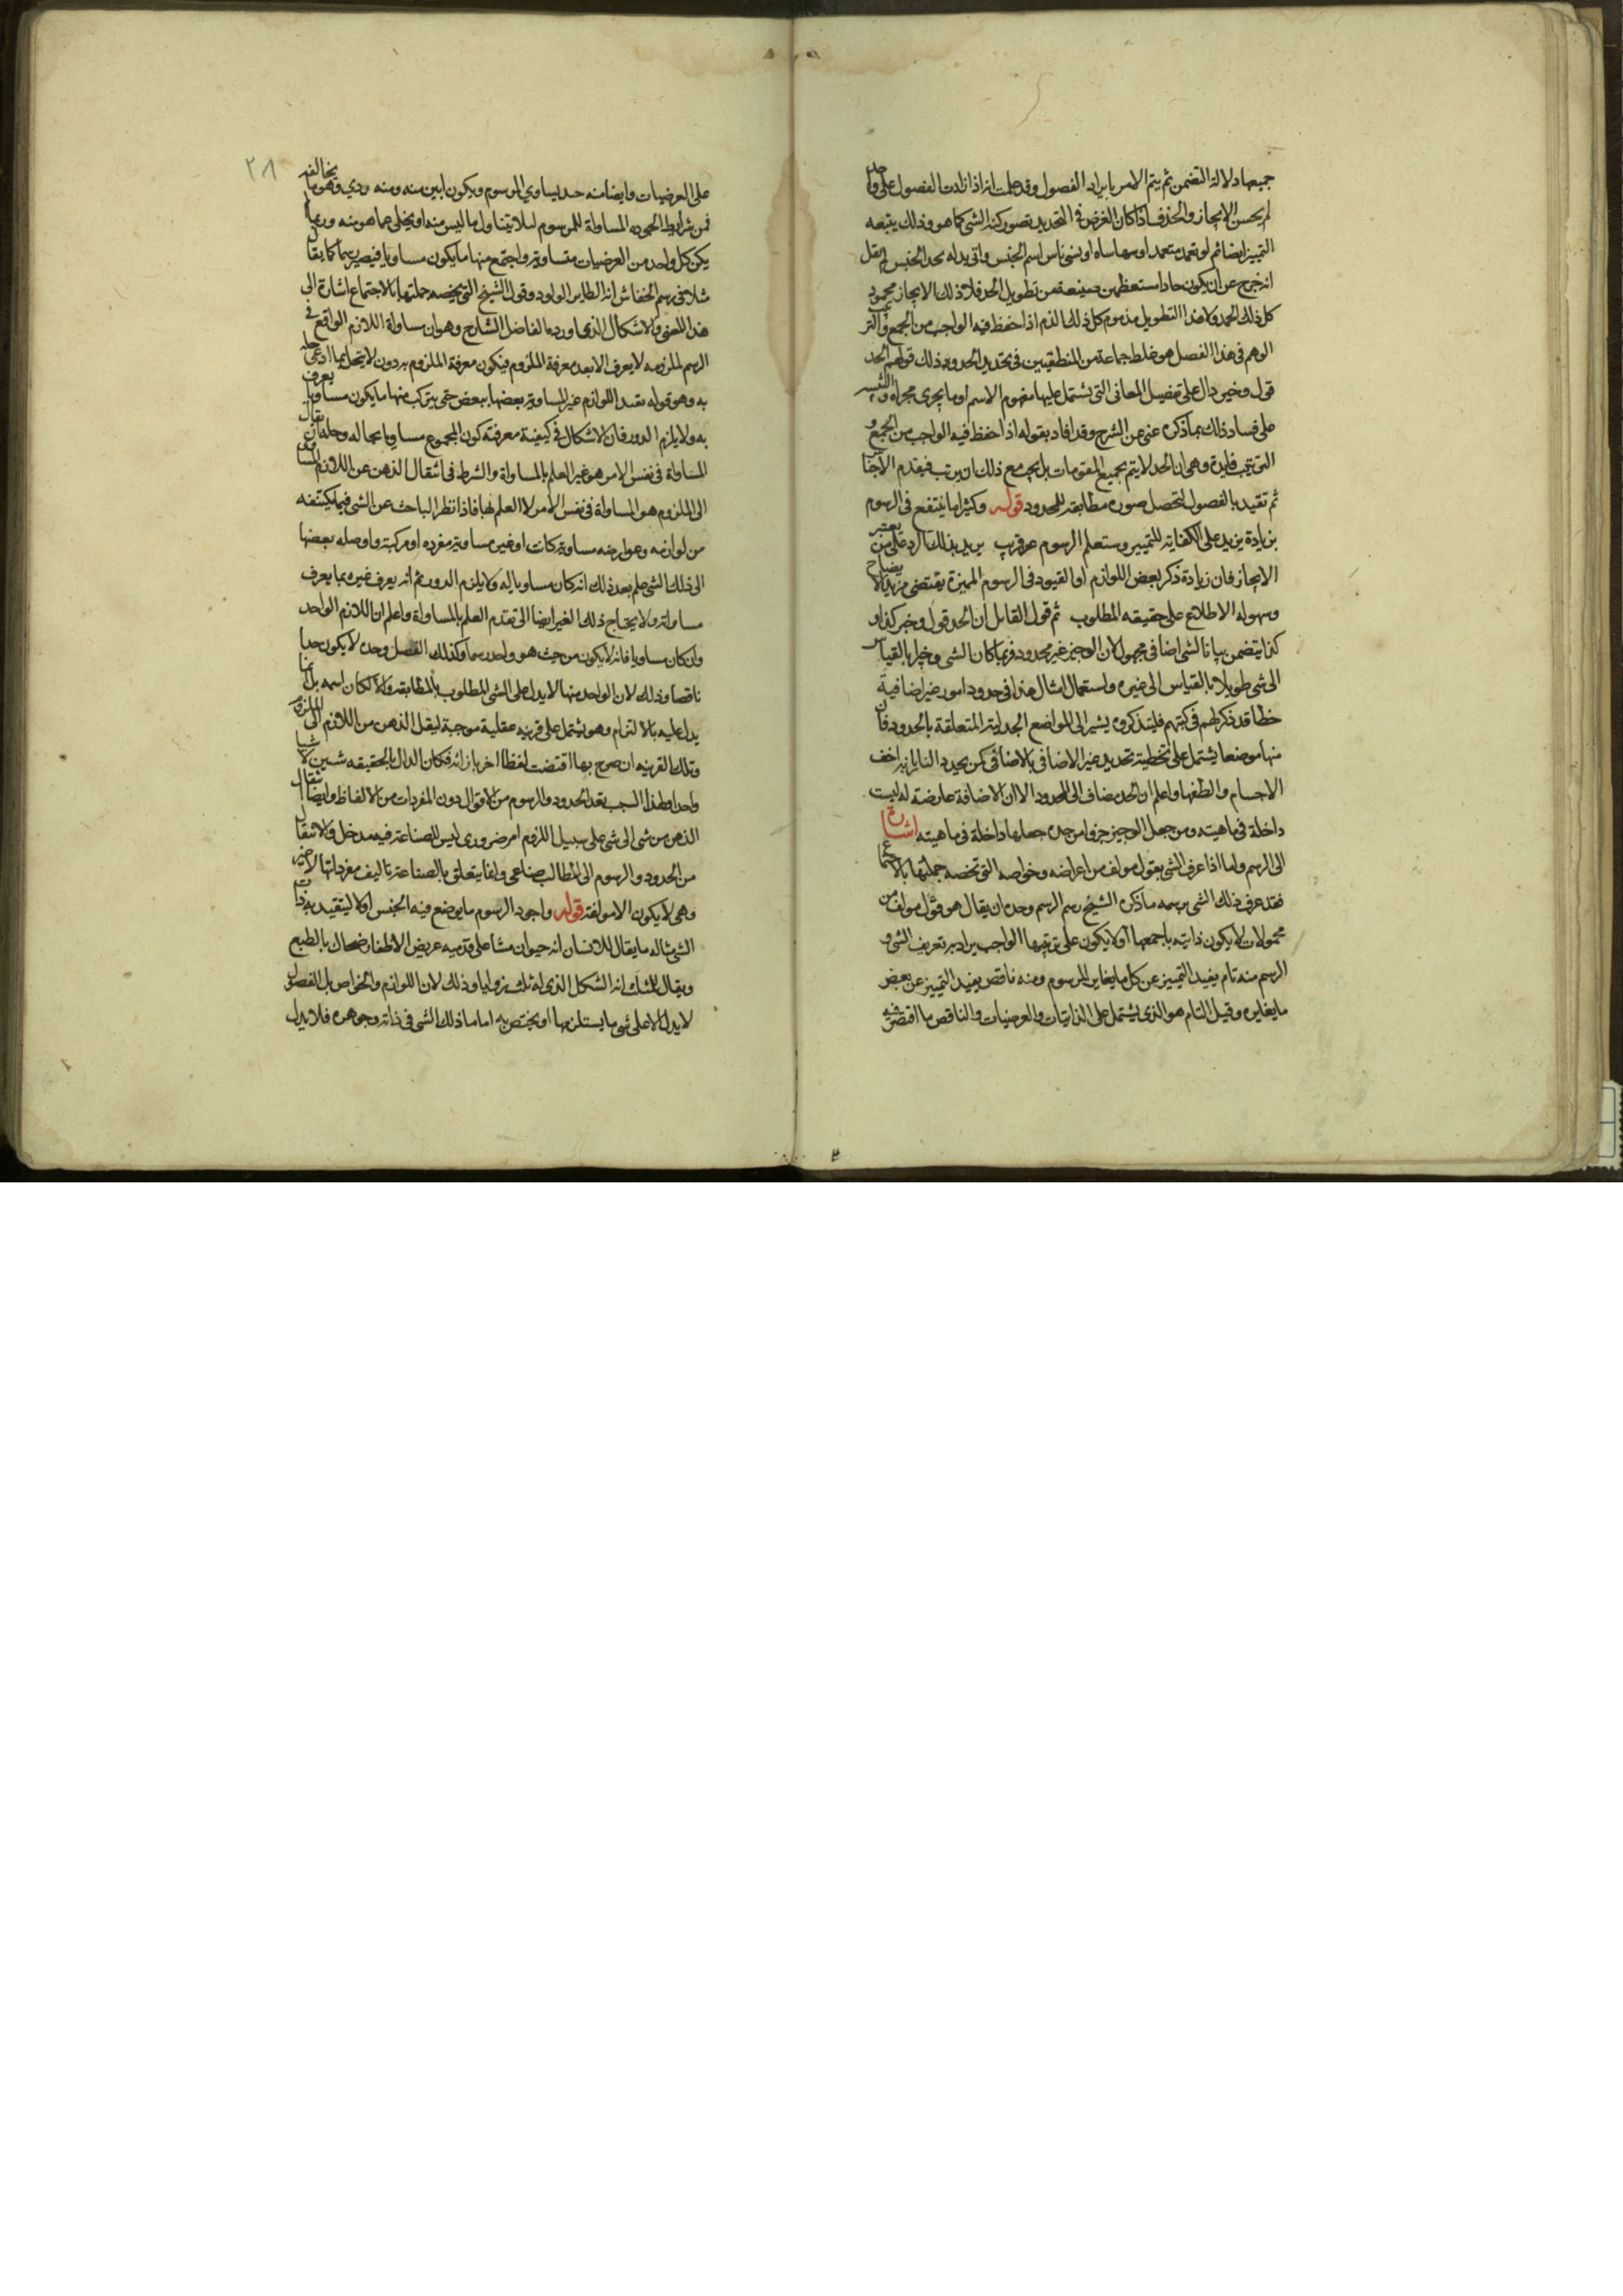 جميعها دلالة التضمن ثم يتم الامر بايراد الفصول وقد علمت انه اذا زادت الفصول على واحد
لم يحسن الايجاز والحذف اذا كان الغرض في التحديد تصور كنه الشي كما هو وذلك يتبعه
التمييز ايضا ثم لو تعمد متعمد او سها ساه او نسي ناس اسم الجنس واتي بدله بحد الجنس لم يقل
انه خرج عن ان يكون حادا مستعظمين صنيعه من تطويل الحد فلا ذلك الايجاز محمود
كل ذلك الحمد ولا هذا التطويل مذموم كل ذلك الذم اذا حفظ فيه الواجب من الجمع والترتيب
الوهم في هذا الفصل هو غلط جماعة من المنطقيين في تحديد الحد وهو ذلك قولهم الحد
قول وجيز دال على تفصيل المعاني التي يشتمل عليها مفهوم الاسم او ما يجري مجراه والتنبيه
على فساد ذلك بما ذكره غني عن الشرح وقد افاد بقوله اذا حفظ فيه الواجب من الجمع و
الترتيب فايدة وهي ان الحد لا يتم بجميع المقومات بل يجب مع ذلك ان يرتب فيقدم الاجناس
ثم تقيد بالفصول لتحصل صورة مطابقة للمحدود قوله وكثيرا ما ينتفع في الرسوم
بزيادة يزيد على الكفاية للتمييز وستعلم الرسوم عن قريب يريد بذلك الرد على من يعتبر
الايجاز فان زيادة ذكر بعض اللوازم او القيود في الرسوم المميزة يقتضي مزيد الايضاح
وسهولة الاطلاع على حقيقة المطلوب ثم قول القائل ان الحد قول وجيز كذا و
كذا يتضمن بيانا لشي اضافي مجهول لان الوجيز غير محدود فربما كان الشي وجيزا بالقياس
الى شي طويلا بالقياس الى غيره واستعمال امثال هذا في حدود امور غير اضافية
خطا قد ذكر لهم في كتبهم فليتذكروه يشير الى المواضع الجدلية المتعلقة بالحدود فان
منها موضعا يشتمل على تخطية تحديد غير الاضافي بالاضافي كمن يحدد النار بانه اخف
الاجسام والطفها واعلم ان الحد مضاف الى المحدود الا ان الاضافة عارضة له ليست
داخلة في ماهيته ومن جعل الوجيز جزوا من حده جعلها داخلة في ماهيته اشارة
الى الرسم واما اذا عرف الشي بقول مولف من اعراضه وخواصه التي تخصه جملتها بالاجتماع
فقد عرف ذلك الشي برسمه ما ذكره الشيخ رسم الرسم وحده ان يقال هو قول مولف من
محمولات لا يكون ذاتية باجمعها او لا يكون على ترتيبها الواجب يراد به تعريف الشي و
الرسم منه تام يفيد التمييز عن كل ما يغاير المرسوم ومنه ناقص يفيد التمييز عن بعض
ما يغايره وقيل التام هو الذي يشتمل على الذاتيات والعرضيات والناقص ما اقتصر فيه
٢٨
على العرضيات وايضا منه حد يساوي المرسوم ويكون ابين منه ومنه ردي وهو ما يخالفه
فمن شرايط الجودة المساواة للمرسوم ليلا يتناول ما ليس منه او يخلى عما هو منه وربما لم
يكن كل واحد من العرضيات متساوية واجتمع منها ما يكون مساويا فيصير رسما كما يقال
مثلا في رسم الخفاش انه الطاير الولود وقول الشيخ التي تخصه جملتها بالاجتماع اشارة الى
هذا المعنى والاشكال الذي اورده الفاضل الشارح وهو ان مساواة اللازم الواقع في
الرسم لملزومه لا يعرف الا بعد معرفة الملزوم فيكون معرفة الملزوم به دون لا ينحل بما ادعى حله
به وهو قوله نقيد اللوازم غير المساوية بعضها ببعض حتى يتركب منها ما يكون مساويا يعرف
به ولا يلزم الدور فان الاشكال في كيفية معرفة كون المجموع مساويا بحاله وحله ان يقال
المساواة في نفس الامر هو غير العلم بالمساواة والشرط في انتقال الذهن عن اللازم المساوي
الى الملزوم هو المساواة في نفس الامر لا العلم بها فاذا نظر الباحث عن الشي فيما يكتنفه
من لوازمه وعوارضه مساوية كانت او غير مساوية مفردة او مركبة واوصله بعضها
الى ذلك الشي علم بعد ذلك انه كان مساويا له ولا يلزم الدور ثم انه يعرف غيره بما يعرف
مساواته ولا يحتاج ذلك الغير ايضا الى تقدم العلم بالمساواة واعلم ان اللازم الواحد
وان كان مساويا فانه لا يكون من حيث هو واحد رسما وكذلك الفصل وحده لا يكون حدا
ناقصا وذلك لان الواحد منها لا يدل على الشي المطلوب بالمطابقة والا لكان اسمه بل انما
يدل عليه بالالتزام وهو يشتمل على قرينة عقلية موجبة لينقل الذهن من اللازم الى الملزوم
وتلك القرينة ان صرح بها اقتضت لفظا اخر بازائه فكان الدال بالحقيقة شيئين لا شيا
واحدا ولهذا السبب يعد الحدود والرسوم من الاقوال دون المفردات من الالفاظ وايضا انتقال
الذهن من شي الى شي على سبيل اللزوم امر ضروري ليس للصناعة فيه مدخل والانتقال
من الحدود والرسوم الى المطالب صناعي وانما يتعلق بالصناعة تاليف مفرداتها لا غير
وهي لا يكون الا مولفة قوله واجود الرسوم ما يوضع فيه الجنس اولا ليتقيد به ذات
الشي مثاله ما يقال للانسان انه حيوان مشا على قدميه عريض الاظفار ضحاك بالطبع
ويقال للمثلث انه الشكل الذي له ثلث زوايا وذلك لان اللوازم والخواص بل الفصول
لا يدل الا على شي ما يستلزمها او يختص به اما ما ذلك الشي في ذاته وجوهره فلا يدل